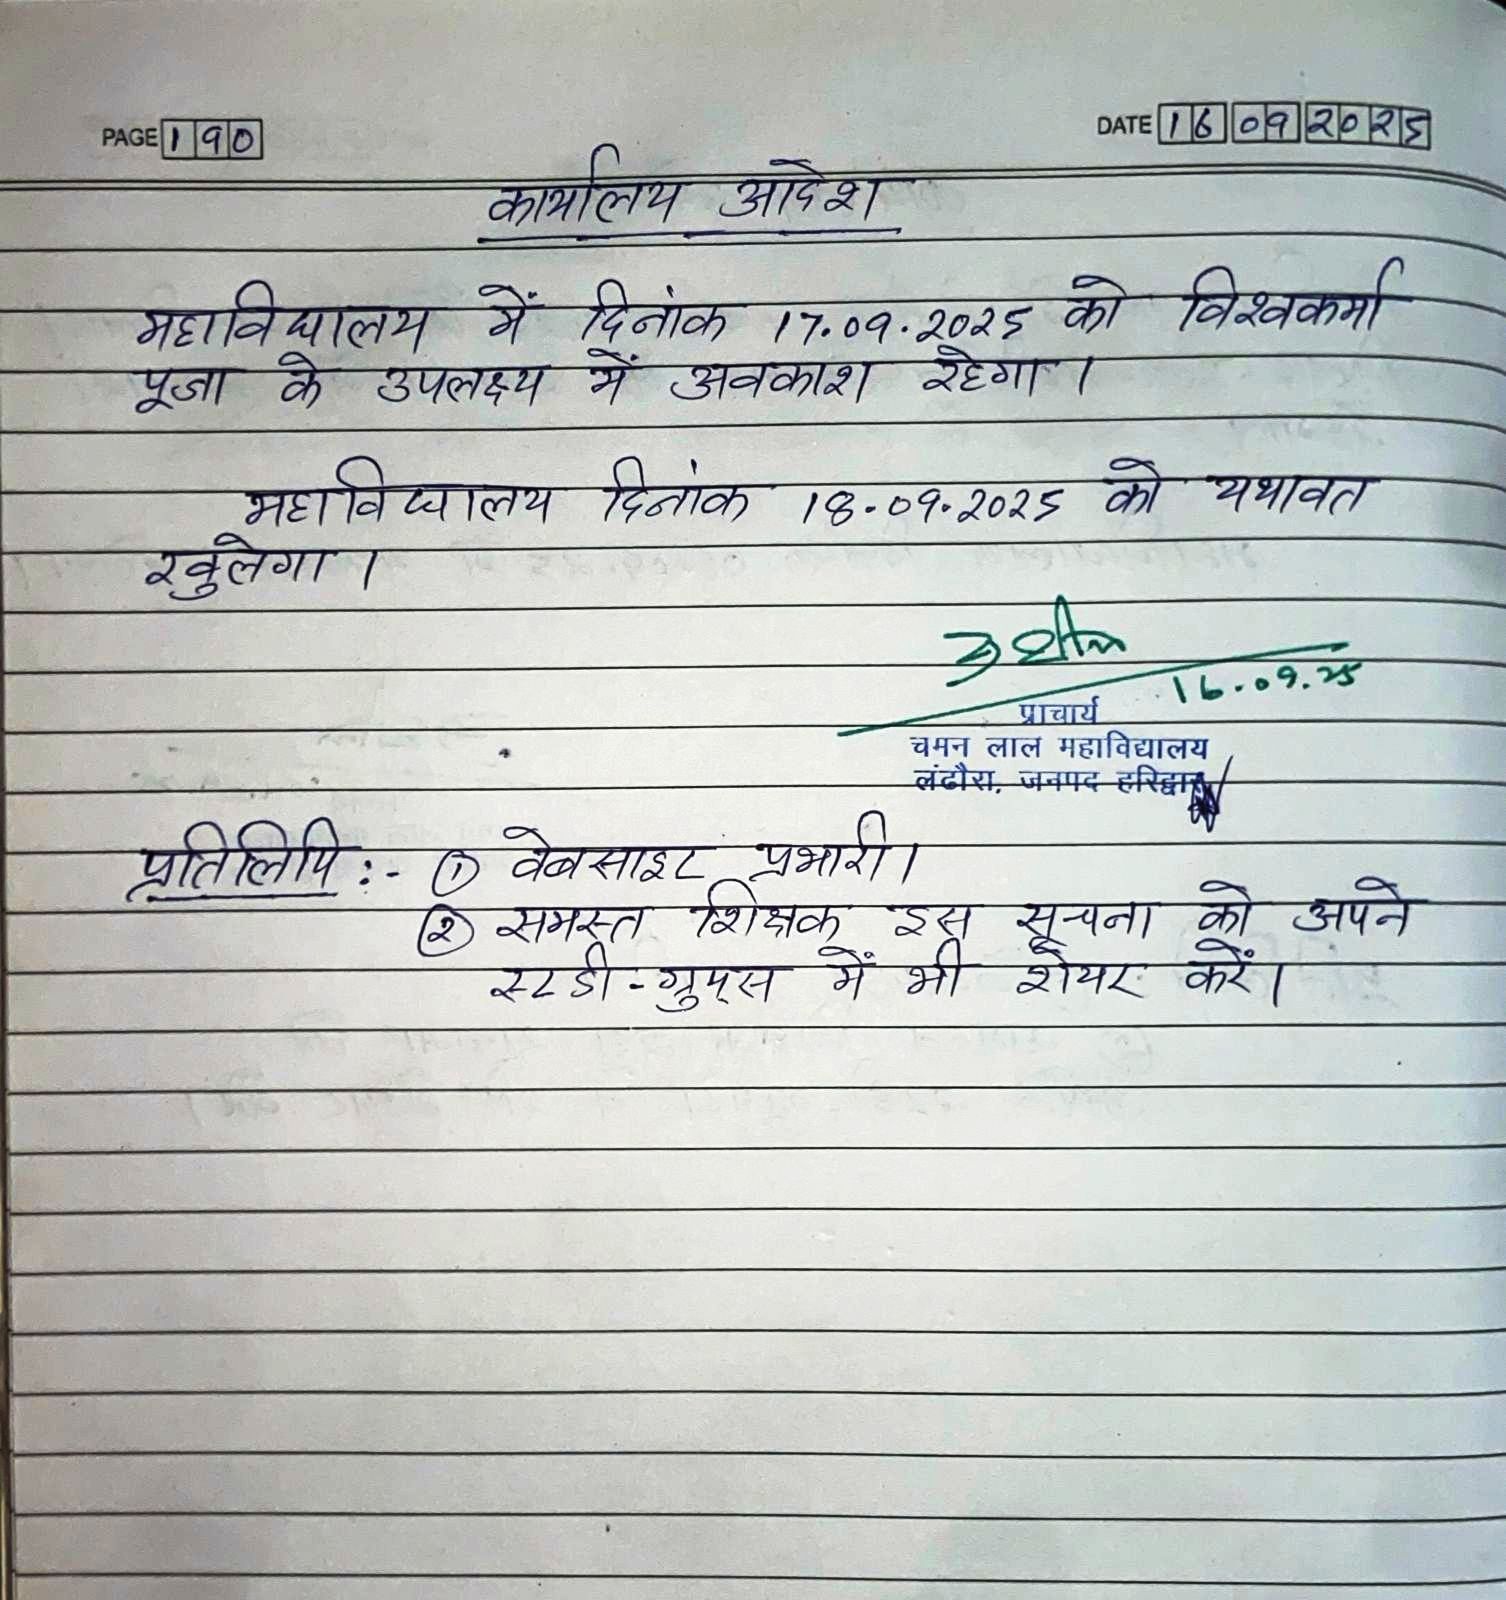 PAGE 190
DATE 16 09 2025
कार्यालय आदेश
महाविद्यालय में दिनांक 17.09.2025 को विश्वकर्मा
पूजा के उपलक्ष्य में अवकाश रहेगा।
महाविद्यालय दिनांक 18.09.2025 को यथावत
खुलेगा।
16.09.25
प्राचार्य
चमन लाल महाविद्यालय
लंढौरा, जनपद हरिद्वार
प्रतिलिपि :- ① वेबसाइट प्रभारी।
② समस्त शिक्षक इस सूचना को अपने
स्टडी-ग्रुप्स में भी शेयर करें।